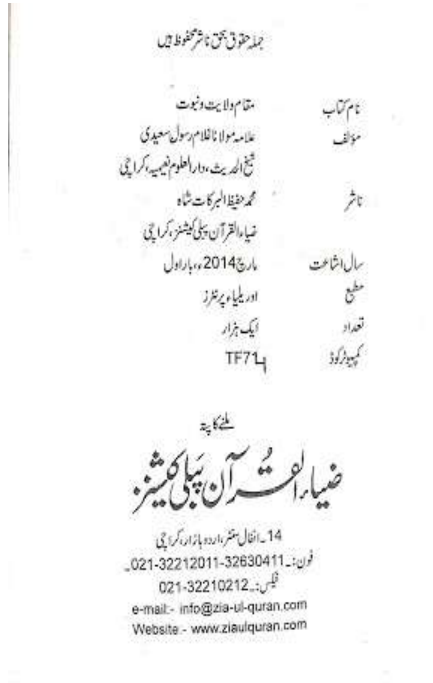 جملہ حقوق بحق ناشر محفوظ ہیں
نام کتاب مقام ولایت و نبوت
مؤلف علامہ مولانا غلام رسول سعیدی
شیخ الحدیث، دارالعلوم نعیمیہ، کراچی
ناشر محمد حفیظ البرکات شاہ
ضیاء القرآن پبلی کیشنز، کراچی
سال اشاعت مارچ 2014ء، بار اول
مطبع اوریلیاء پرنٹرز
تعداد ایک ہزار
کمپیوٹر کوڈ TF71
ملنے کا پتہ
ضیاء القرآن پبلی کیشنز
14۔ انفال سنٹر، اردو بازار، کراچی
فون:۔ 021-32212011-32630411۔
فیکس:۔ 021-32210212
e-mail:- info@zia-ul-quran.com
Website:- www.ziaulquran.com